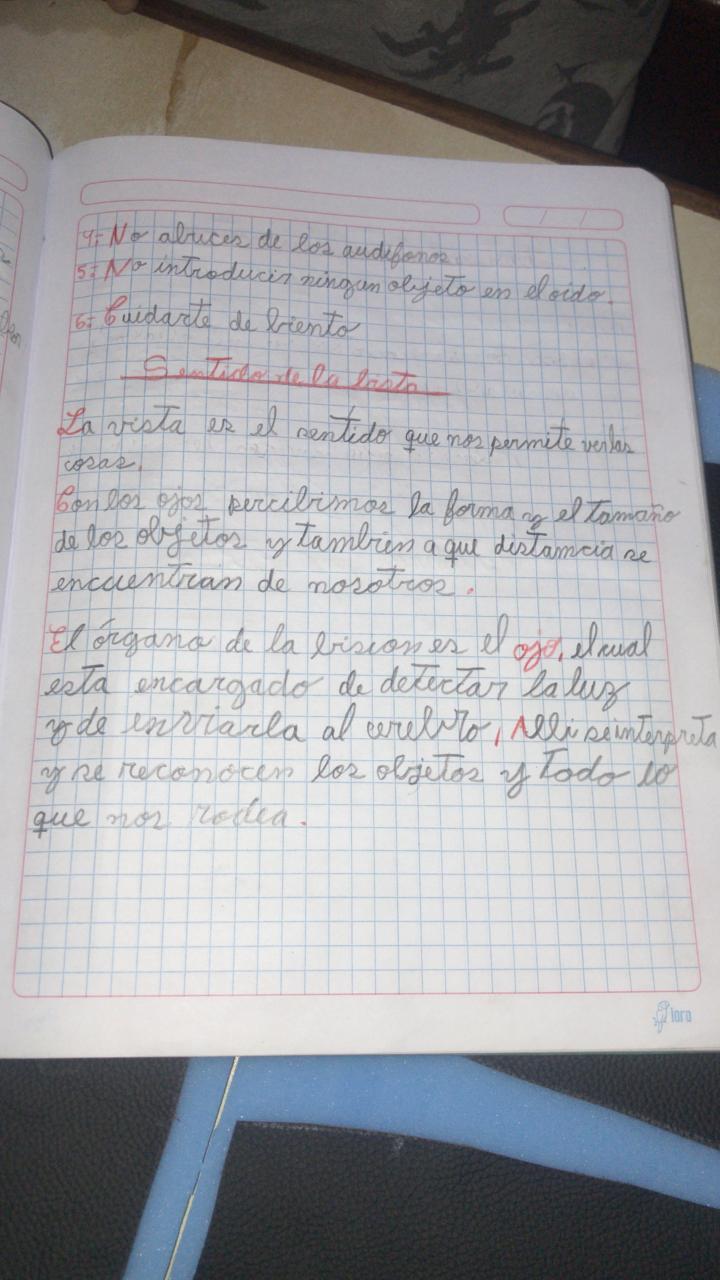 4: No abuces de los audifonos
5: No introducir ningun objeto en el oido.
6: Cuidarte de biento
Sentido de la bista
La vista es el sentido que nos permite ver las
cosas.
Con los ojos percibimos la forma y el tamaño
de los objetos y tambien a que distamcia se
encuentran de nosotros.
El órgano de la bision es el ojo, el cual
esta encargado de detectar la luz
y de enviarla al cerebro, Alli se interpreta
y se reconocen los objetos y todo lo
que nos rodea.
loro